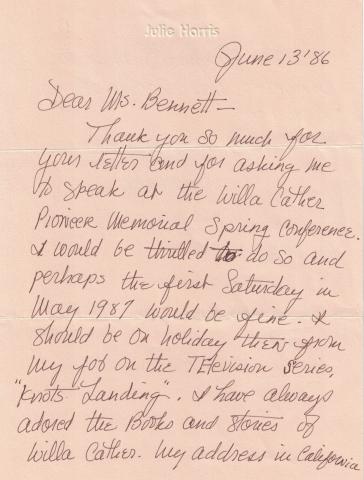 Julie Harris
June 13 '86
Dear Ms. Bennett -
Thank you so much for
your letter and for asking me
to speak at the Willa Cather
Pioneer Memorial Spring Conference.
I would be thrilled to do so and
perhaps the first Saturday in
May 1987 would be fine. I
should be on holiday then from
my job on the TElevision series,
"Knots Landing". I have always
adored the Books and Stories of
Willa Cather. My address in California